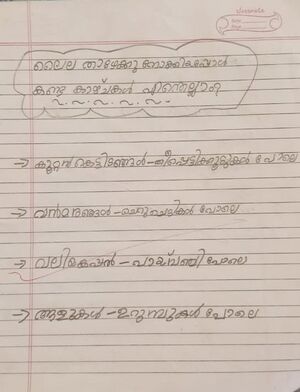 classmate
Date
Page
ലൈല താഴേക്കു നോക്കിയപ്പോൾ
കണ്ട കാഴ്ചകൾ എന്തെല്ലാം?
→ കൂറ്റൻ കെട്ടിടങ്ങൾ - തീപ്പെട്ടിക്കൂടുകൾ പോലെ
→ വൻമരങ്ങൾ - ചെറുചെടികൾ പോലെ
→ വലിയകപ്പൽ - പായ്‌വഞ്ചി പോലെ
→ ആളുകൾ - ഉറുമ്പുകൾ പോലെ